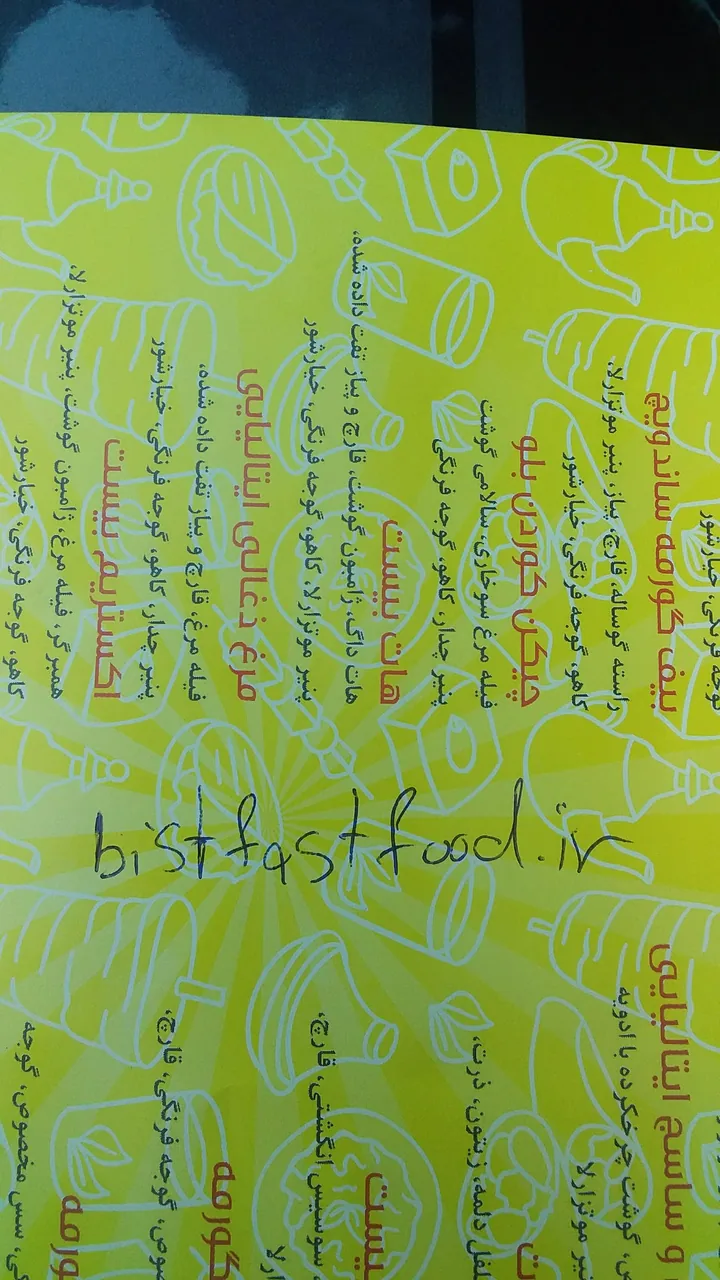 گوجه فرنگی، خیارشور
بیف گورمه ساندویچ
راسته گوساله، قارچ، پیاز، پنیر موتزارلا،
کاهو، گوجه فرنگی، خیارشور
چیکن کوردن بلو
فیله مرغ سوخاری، سالامی گوشت
پنیر چدار، کاهو، گوجه فرنگی
هات بیست
هات داگ، ژامبون گوشت، قارچ و پیاز تفت داده شده،
پنیر موتزارلا، کاهو، گوجه فرنگی، خیارشور
مرغ ذغالی ایتالیایی
فیله مرغ، قارچ و پیاز تفت داده شده،
پنیر چدار، کاهو، گوجه فرنگی، خیارشور
اکستریم بیست
همبرگر، فیله مرغ، ژامبون گوشت، پنیر موتزارلا،
کاهو، گوجه فرنگی، خیارشور
bistfastfood.ir
و ساسج ایتالیایی
گوشت چرخکرده با ادویه
موتزارلا
دلمه، زیتون، ذرت،
بیست
سوسیس انگشتی، قارچ،
گورمه
گوجه فرنگی، قارچ،
سس مخصوص، گوجه